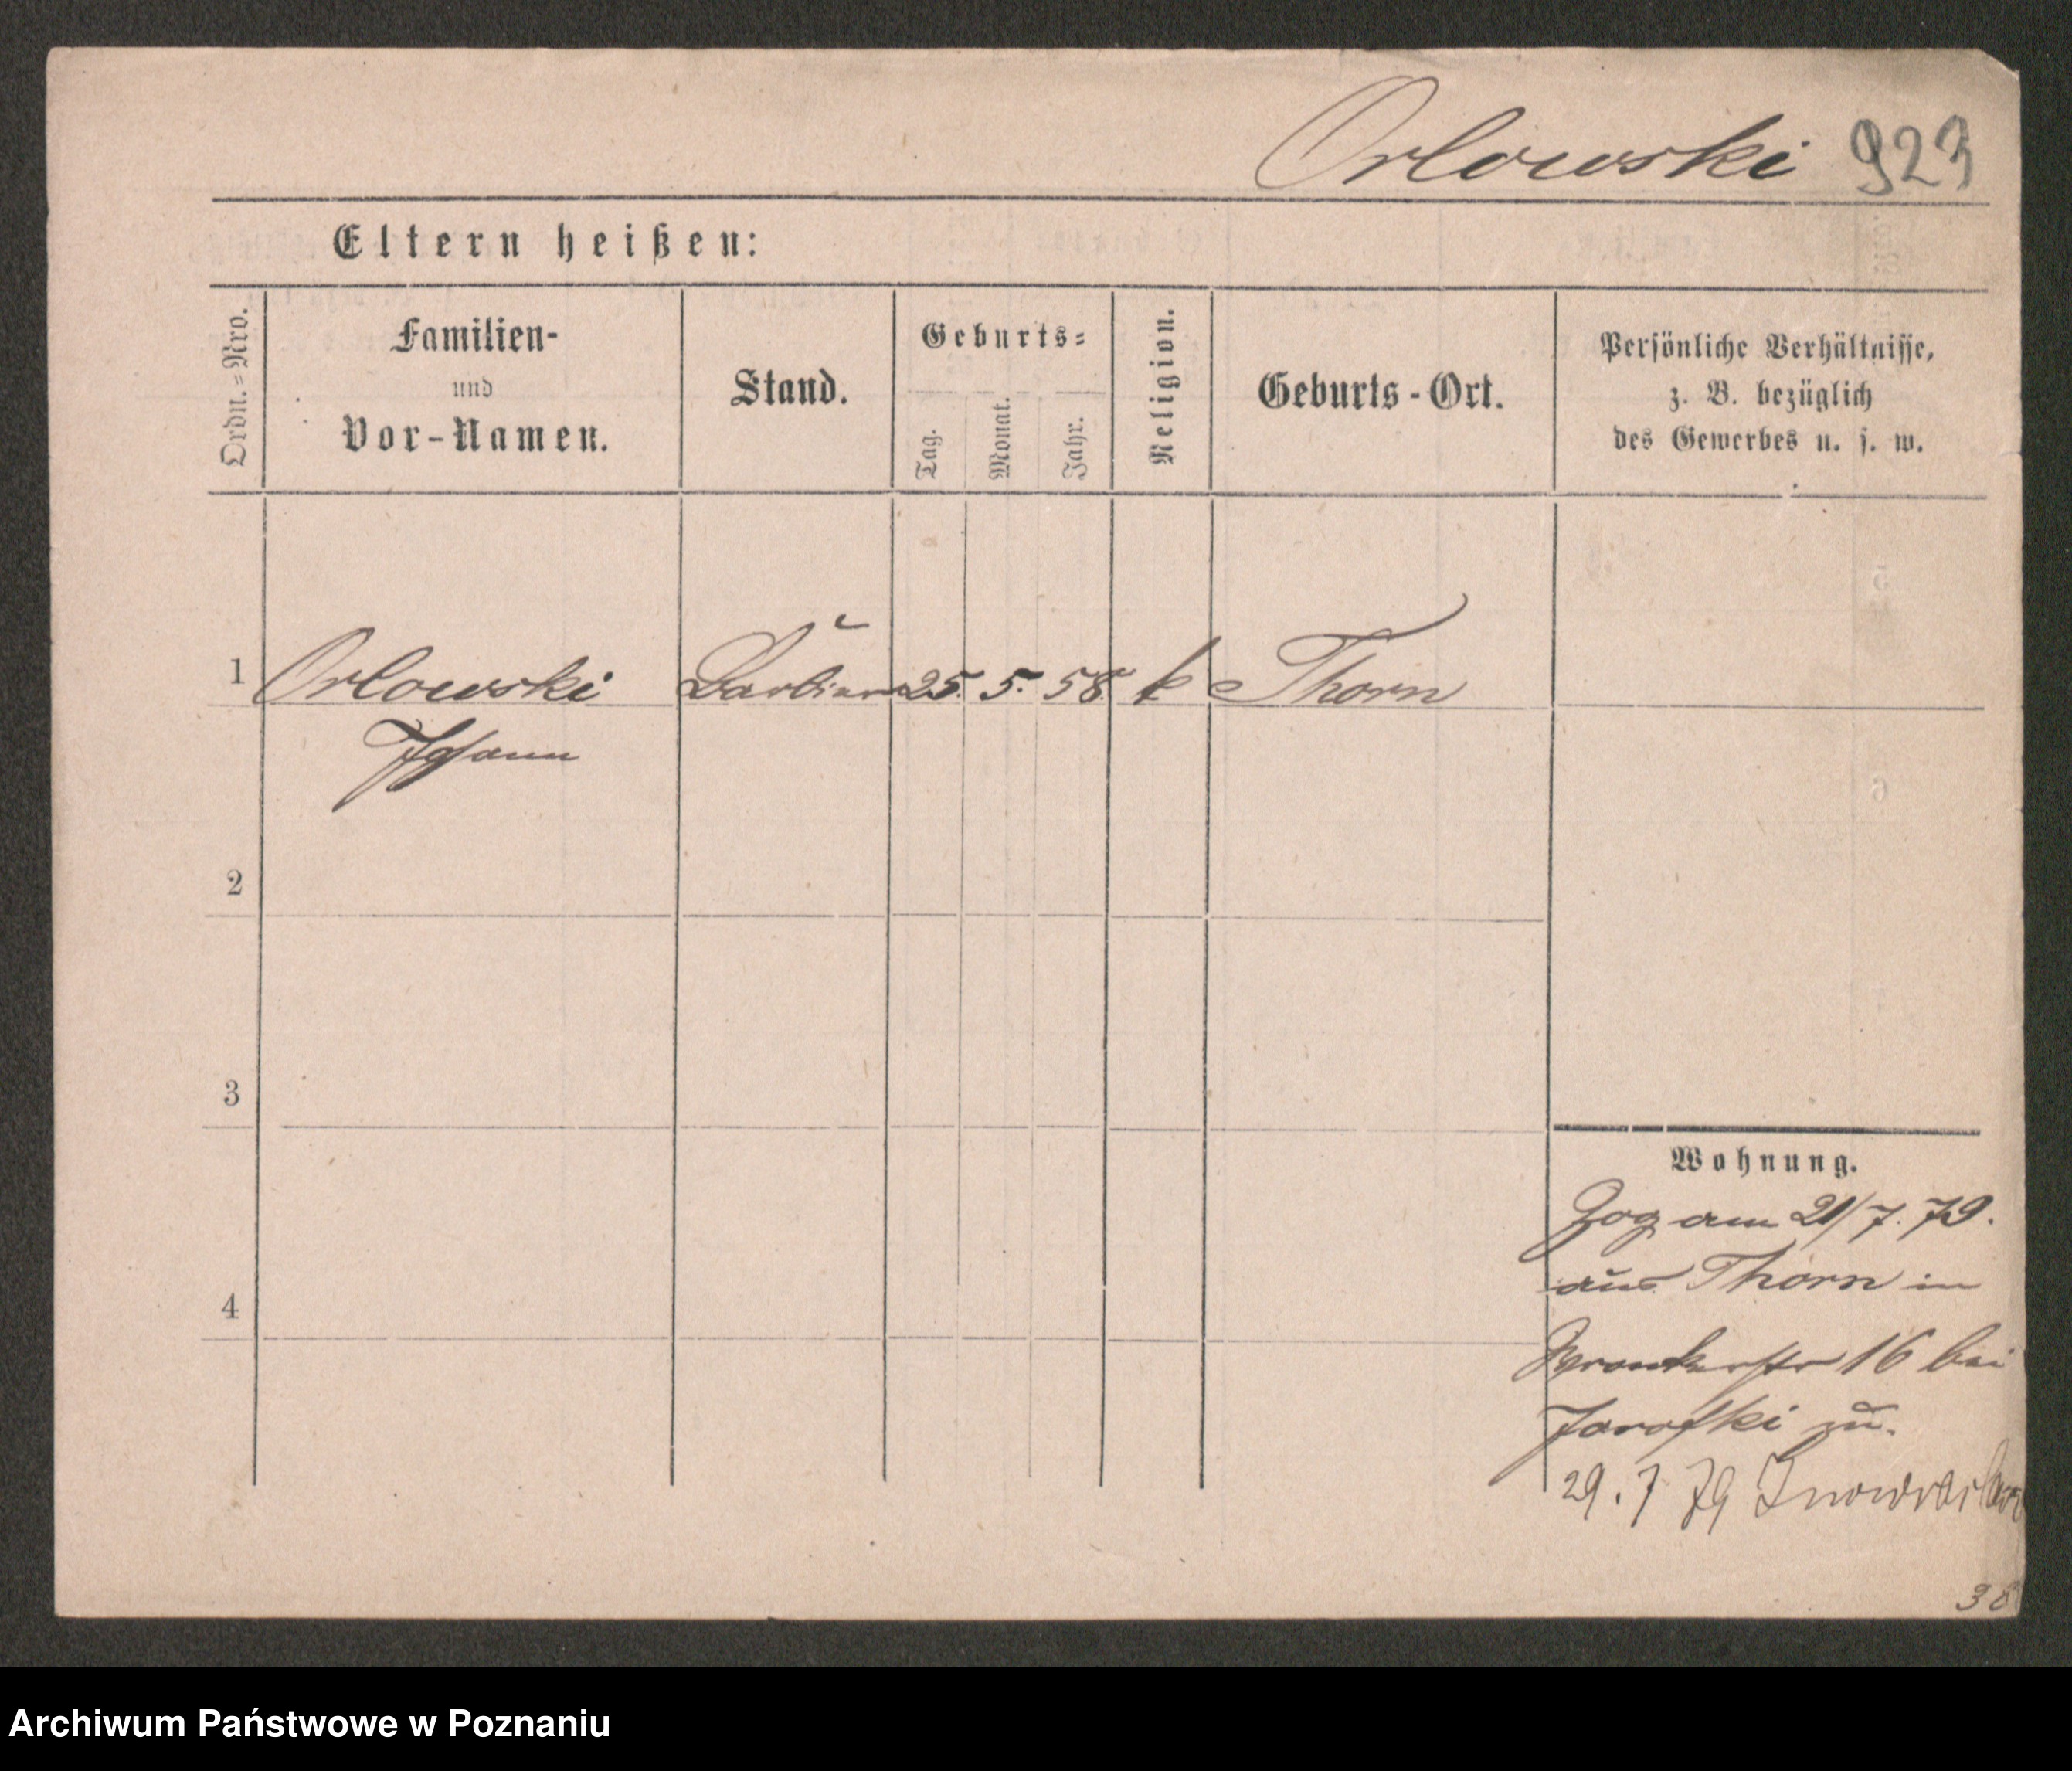 Orlowski 923
Eltern heißen:
Ordn.=Nro.
Familien-
und
Vor-Namen.
Stand.
Geburts=
Tag.
Monat.
Jahr.
Religion.
Geburts-Ort.
Persönliche Verhältnisse,
z. B. bezüglich
des Gewerbes u. s. w.
1 Orlowski Barbier 25. 5. 58. k Thorn
Johann
2
3
4
Wohnung.
Zog am 21/7. 79.
aus Thorn in
Wronkerstr 16 bei
zu.
29.7 79
38
Archiwum Państwowe w Poznaniu